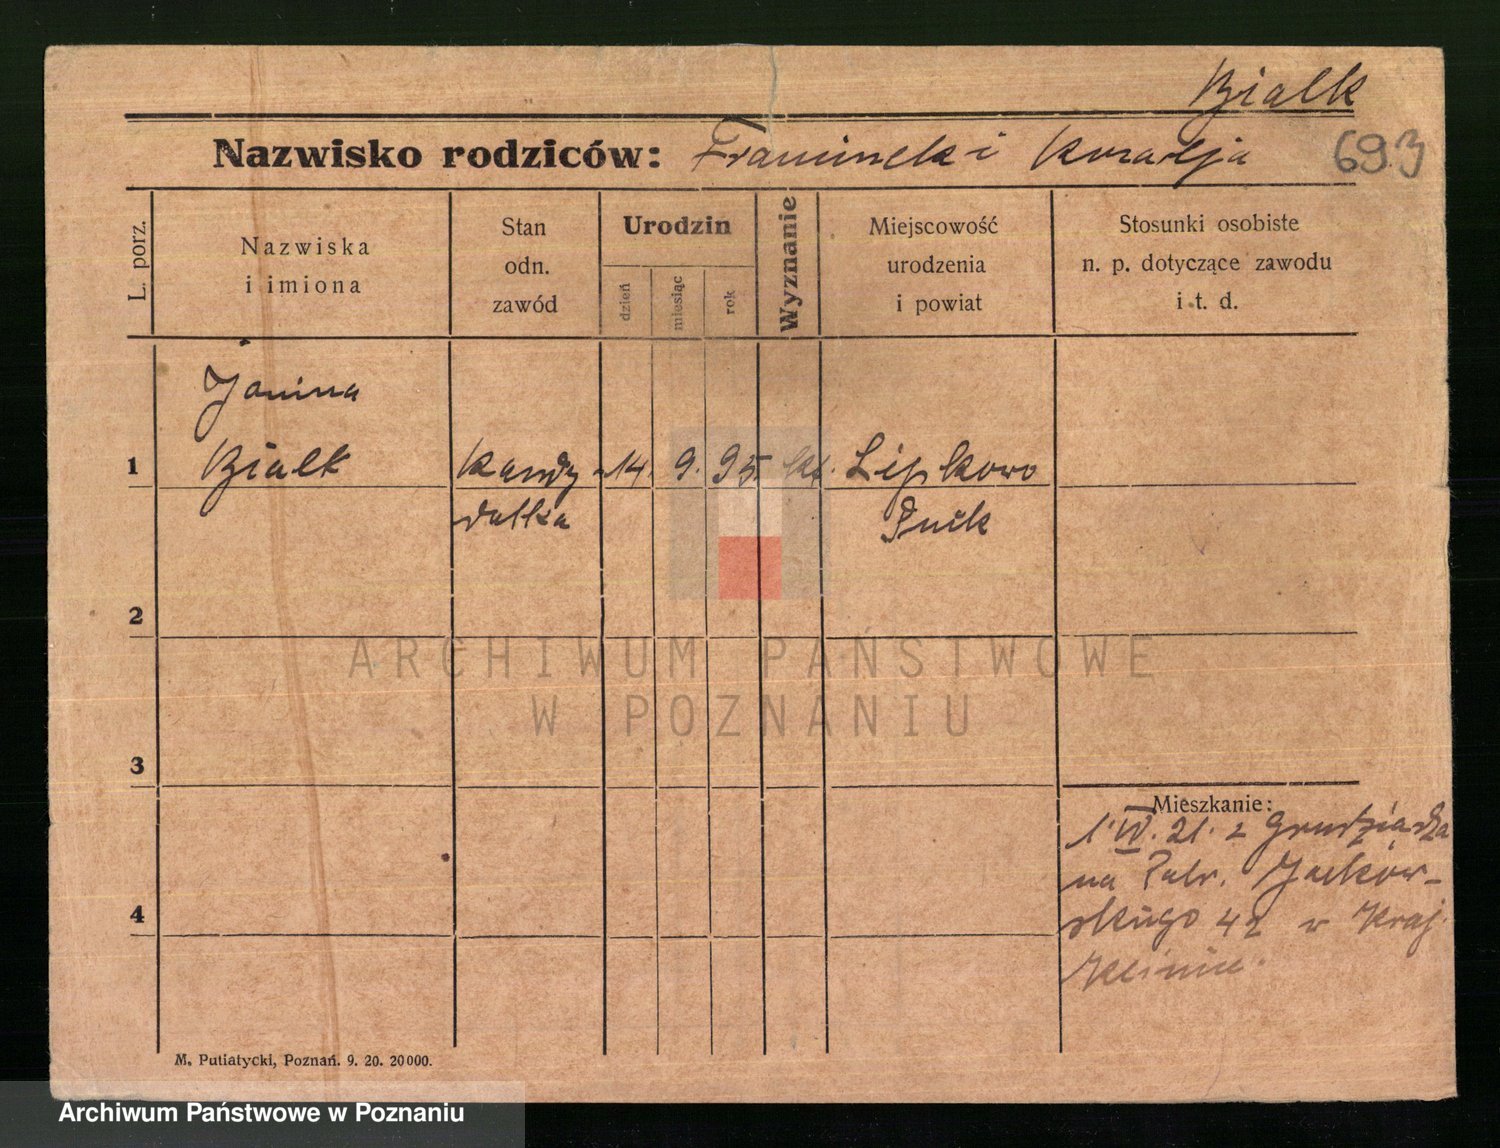 Bialk
Nazwisko rodziców: Franciszek i Rozalja
693
L. porz.
Nazwiska
i imiona
Stan
odn.
zawód
Urodzin
dzień
miesiąc
rok
Wyznanie
Miejscowość
urodzenia
i powiat
Stosunki osobiste
n. p. dotyczące zawodu
i t. d.
Janina
1 Bialk Kandy 14. 9. 95. kt. Lipkowo
datka Puck
2
3
4
Mieszkanie:
1. VI. 21. z Grudziądza
na Patr. Jacków-
skiego 42 w Kraj.
Klinice.
M. Putiatycki, Poznań. 9. 20. 20000.
ARCHIWUM PAŃSTWOWE
W POZNANIU
Archiwum Państwowe w Poznaniu